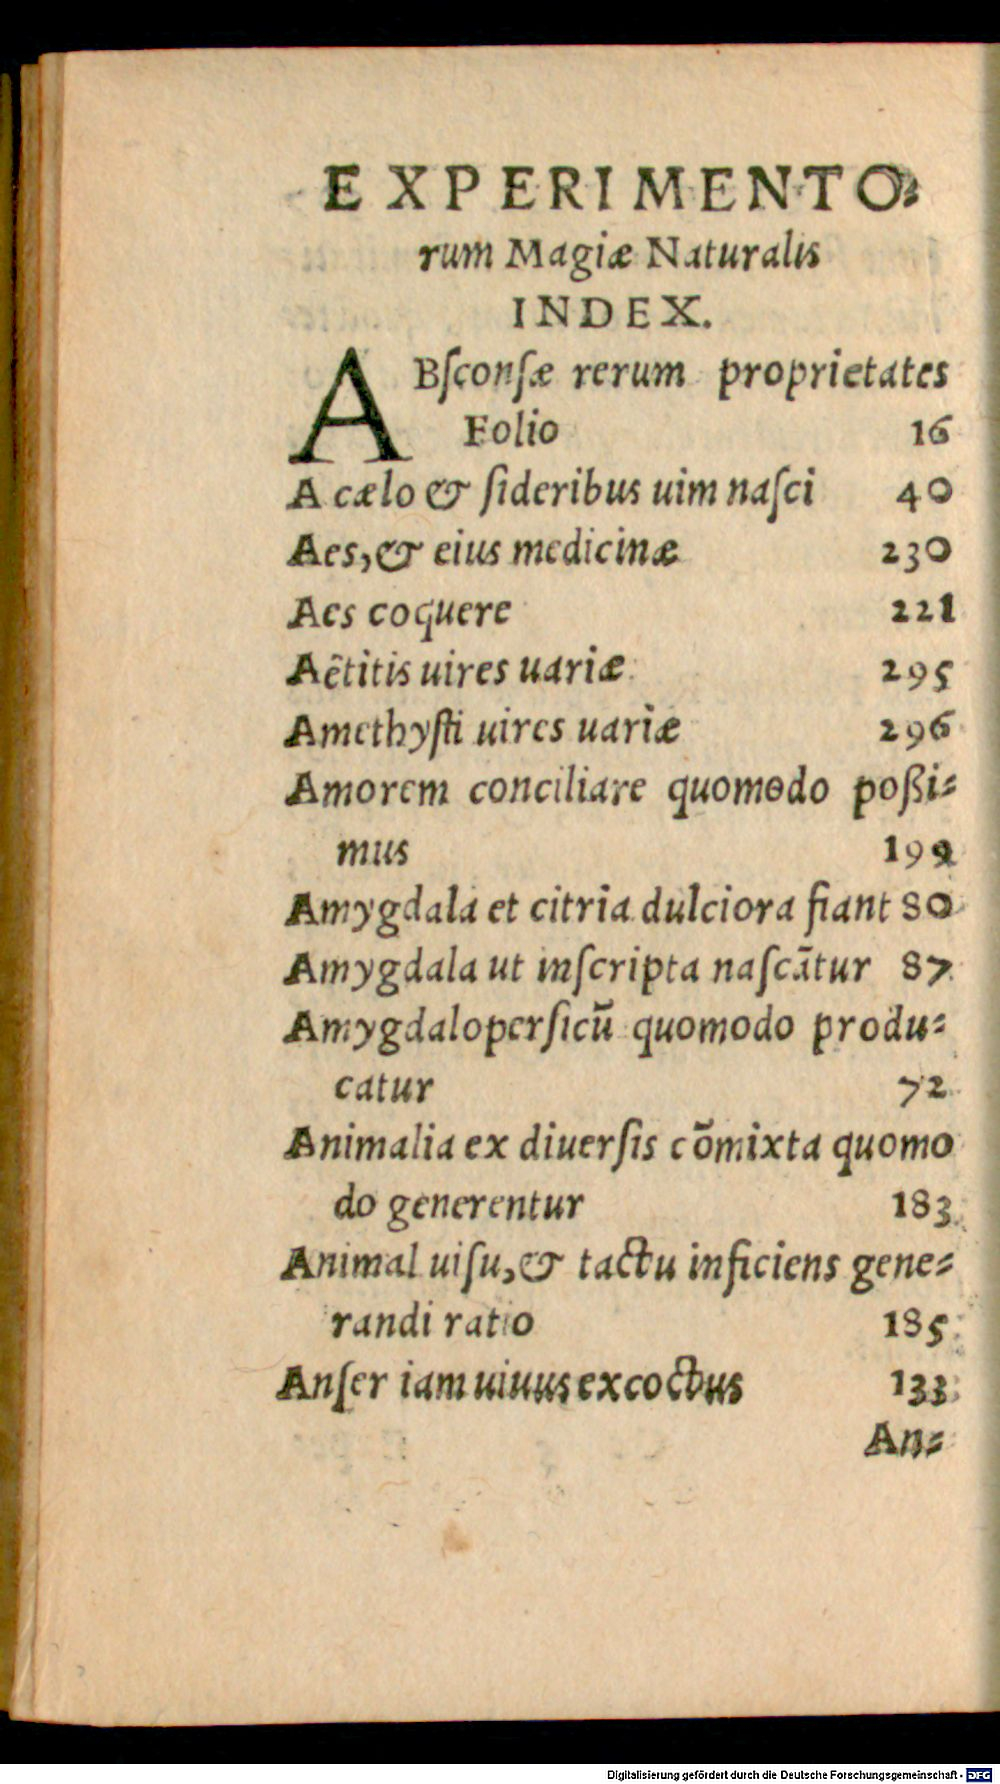 EXPERIMENTO⸗
rum Magiæ Naturalis
INDEX.
ABſconſæ rerum proprietates
Folio 16
A cælo & ſideribus uim naſci 40
Aes, & eius medicinæ 230
Aes coquere 221
Aëtitis uires uariæ 295
Amethyſti uires uariæ 296
Amorem conciliare quomodo poßi⸗
mus 199
Amygdala et citria dulciora fiant 80
Amygdala ut inſcripta naſcātur 87
Amygdaloperſicū quomodo produ⸗
catur 72
Animalia ex diuerſis cōmixta quomo
do generentur 183
Animal uiſu, & tactu inficiens gene⸗
randi ratio 185
Anſer iam uiuus excoctus 133
An⸗
Digitalisierung gefördert durch die Deutsche Forschungsgemeinschaft - DFG